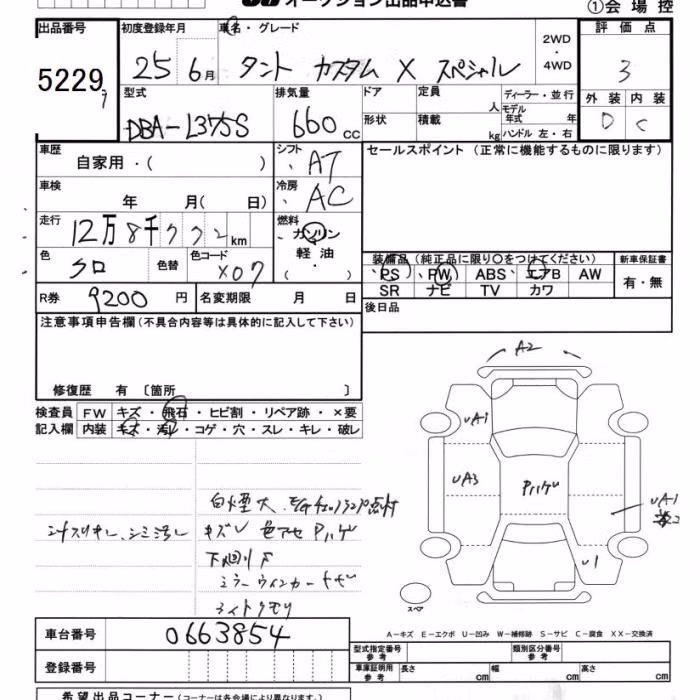 オークション出品申込書
①会場控
出品番号 初度登録年月 車名・グレード 2WD・4WD 評価点
5229 25 6月 タント カスタム X スペシャル 3
型式 排気量 ドア 定員 人 ディーラー・並行 外装 内装
DBA-L375S 660cc 形状 積載 kg モデル年式 年 ハンドル 左・右 D C
車歴 自家用・( ) シフト AT セールスポイント (正常に機能するものに限ります)
車検 年 月( 日) 冷房 AC
走行 12万8千772km 燃料 ガソリン・軽油 ( ・ )
色 クロ 色替 色コード X07
装備品(純正品に限り○をつけてください) 新車保証書
PS PW ABS エアB AW 有・無
SR ナビ TV カワ
R券 9200円 名変期限 月 日 後日品
注意事項申告欄(不具合内容等は具体的に記入して下さい)
修復歴 有 〔箇所 〕
検査員 FW キズ・飛石・ヒビ割・リペア跡・×要
記入欄 内装 キズ・汚レ・コゲ・穴・スレ・キレ・破レ
A2
UA1
UA3 Pハゲ UA1
U1
スペア
白煙大、E/Gチェックランプ点灯
シートスリキレ、シミ汚レ キズU 色アセ Pハゲ
下廻りサ
ミラーウィンカー
ライトクモリ
車台番号 0663854
A-キズ E-エクボ U-凹み W-補修跡 S-サビ C-腐食 XX-交換済
型式指定番号 参考 類別区分番号 参考
登録番号 車庫証明用 参考 長さ cm 幅 cm 高さ cm
希望出品コーナー (コーナーは各会場により異なります。)